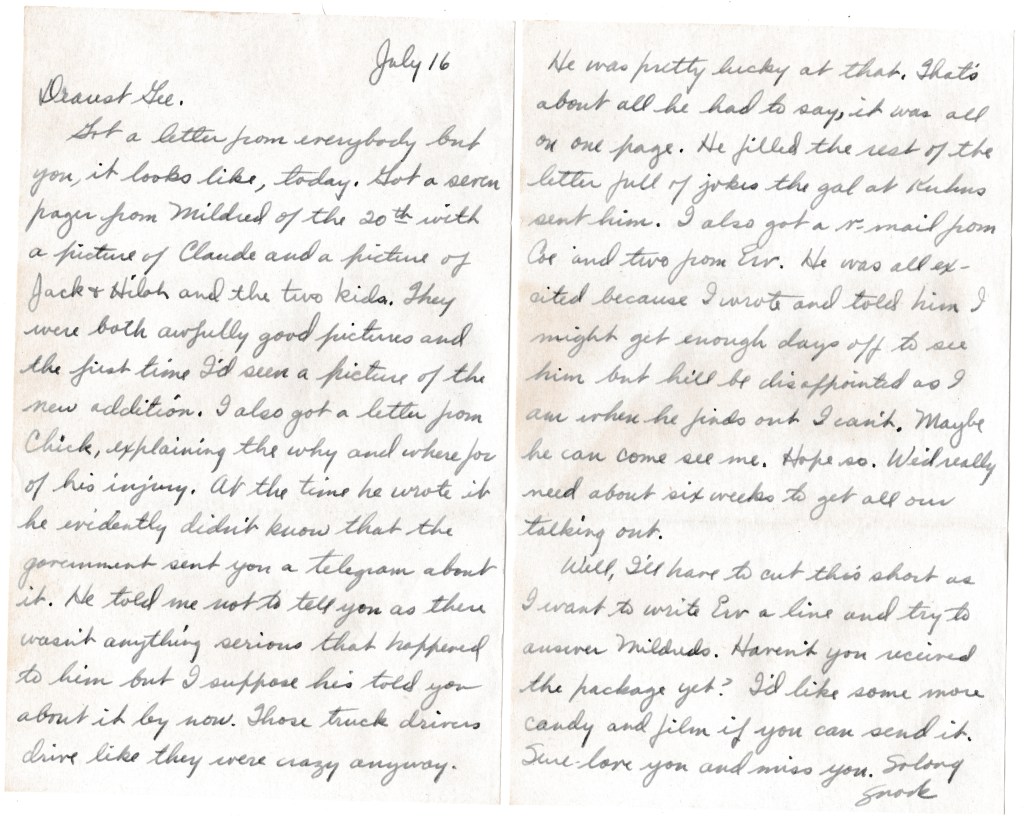 July 16
Dearest Gee.
Got a letter from everybody but
you, it looks like, today. Got a seven
pager from Mildred of the 20th with
a picture of Claude and a picture of
Jack & Hilah and the two kids. They
were both awfully good pictures and
the first time I'd seen a picture of the
new addition. I also got a letter from
Chick, explaining the why and where for
of his injury. At the time he wrote it
he evidently didn't know that the
government sent you a telegram about
it. He told me not to tell you as there
wasn't anything serious that happened
to him but I suppose his told you
about it by now. Those truck drivers
drive like they were crazy anyway.
He was pretty lucky at that. That's
about all he had to say, it was all
on one page. He filled the rest of the
letter full of jokes the gal at Kuhns
sent him. I also got a v-mail from
Coe and two from Erv. He was all ex-
cited because I wrote and told him I
might get enough days off to see
him but he'll be disappointed as I
am when he finds out I can't. Maybe
he can come see me. Hope so. We'd really
need about six weeks to get all our
talking out.
Well, I'll have to cut this short as
I want to write Erv a line and try to
answer Mildreds. Haven't you received
the package yet? I'd like some more
candy and film if you can send it.
Sure love you and miss you. So long